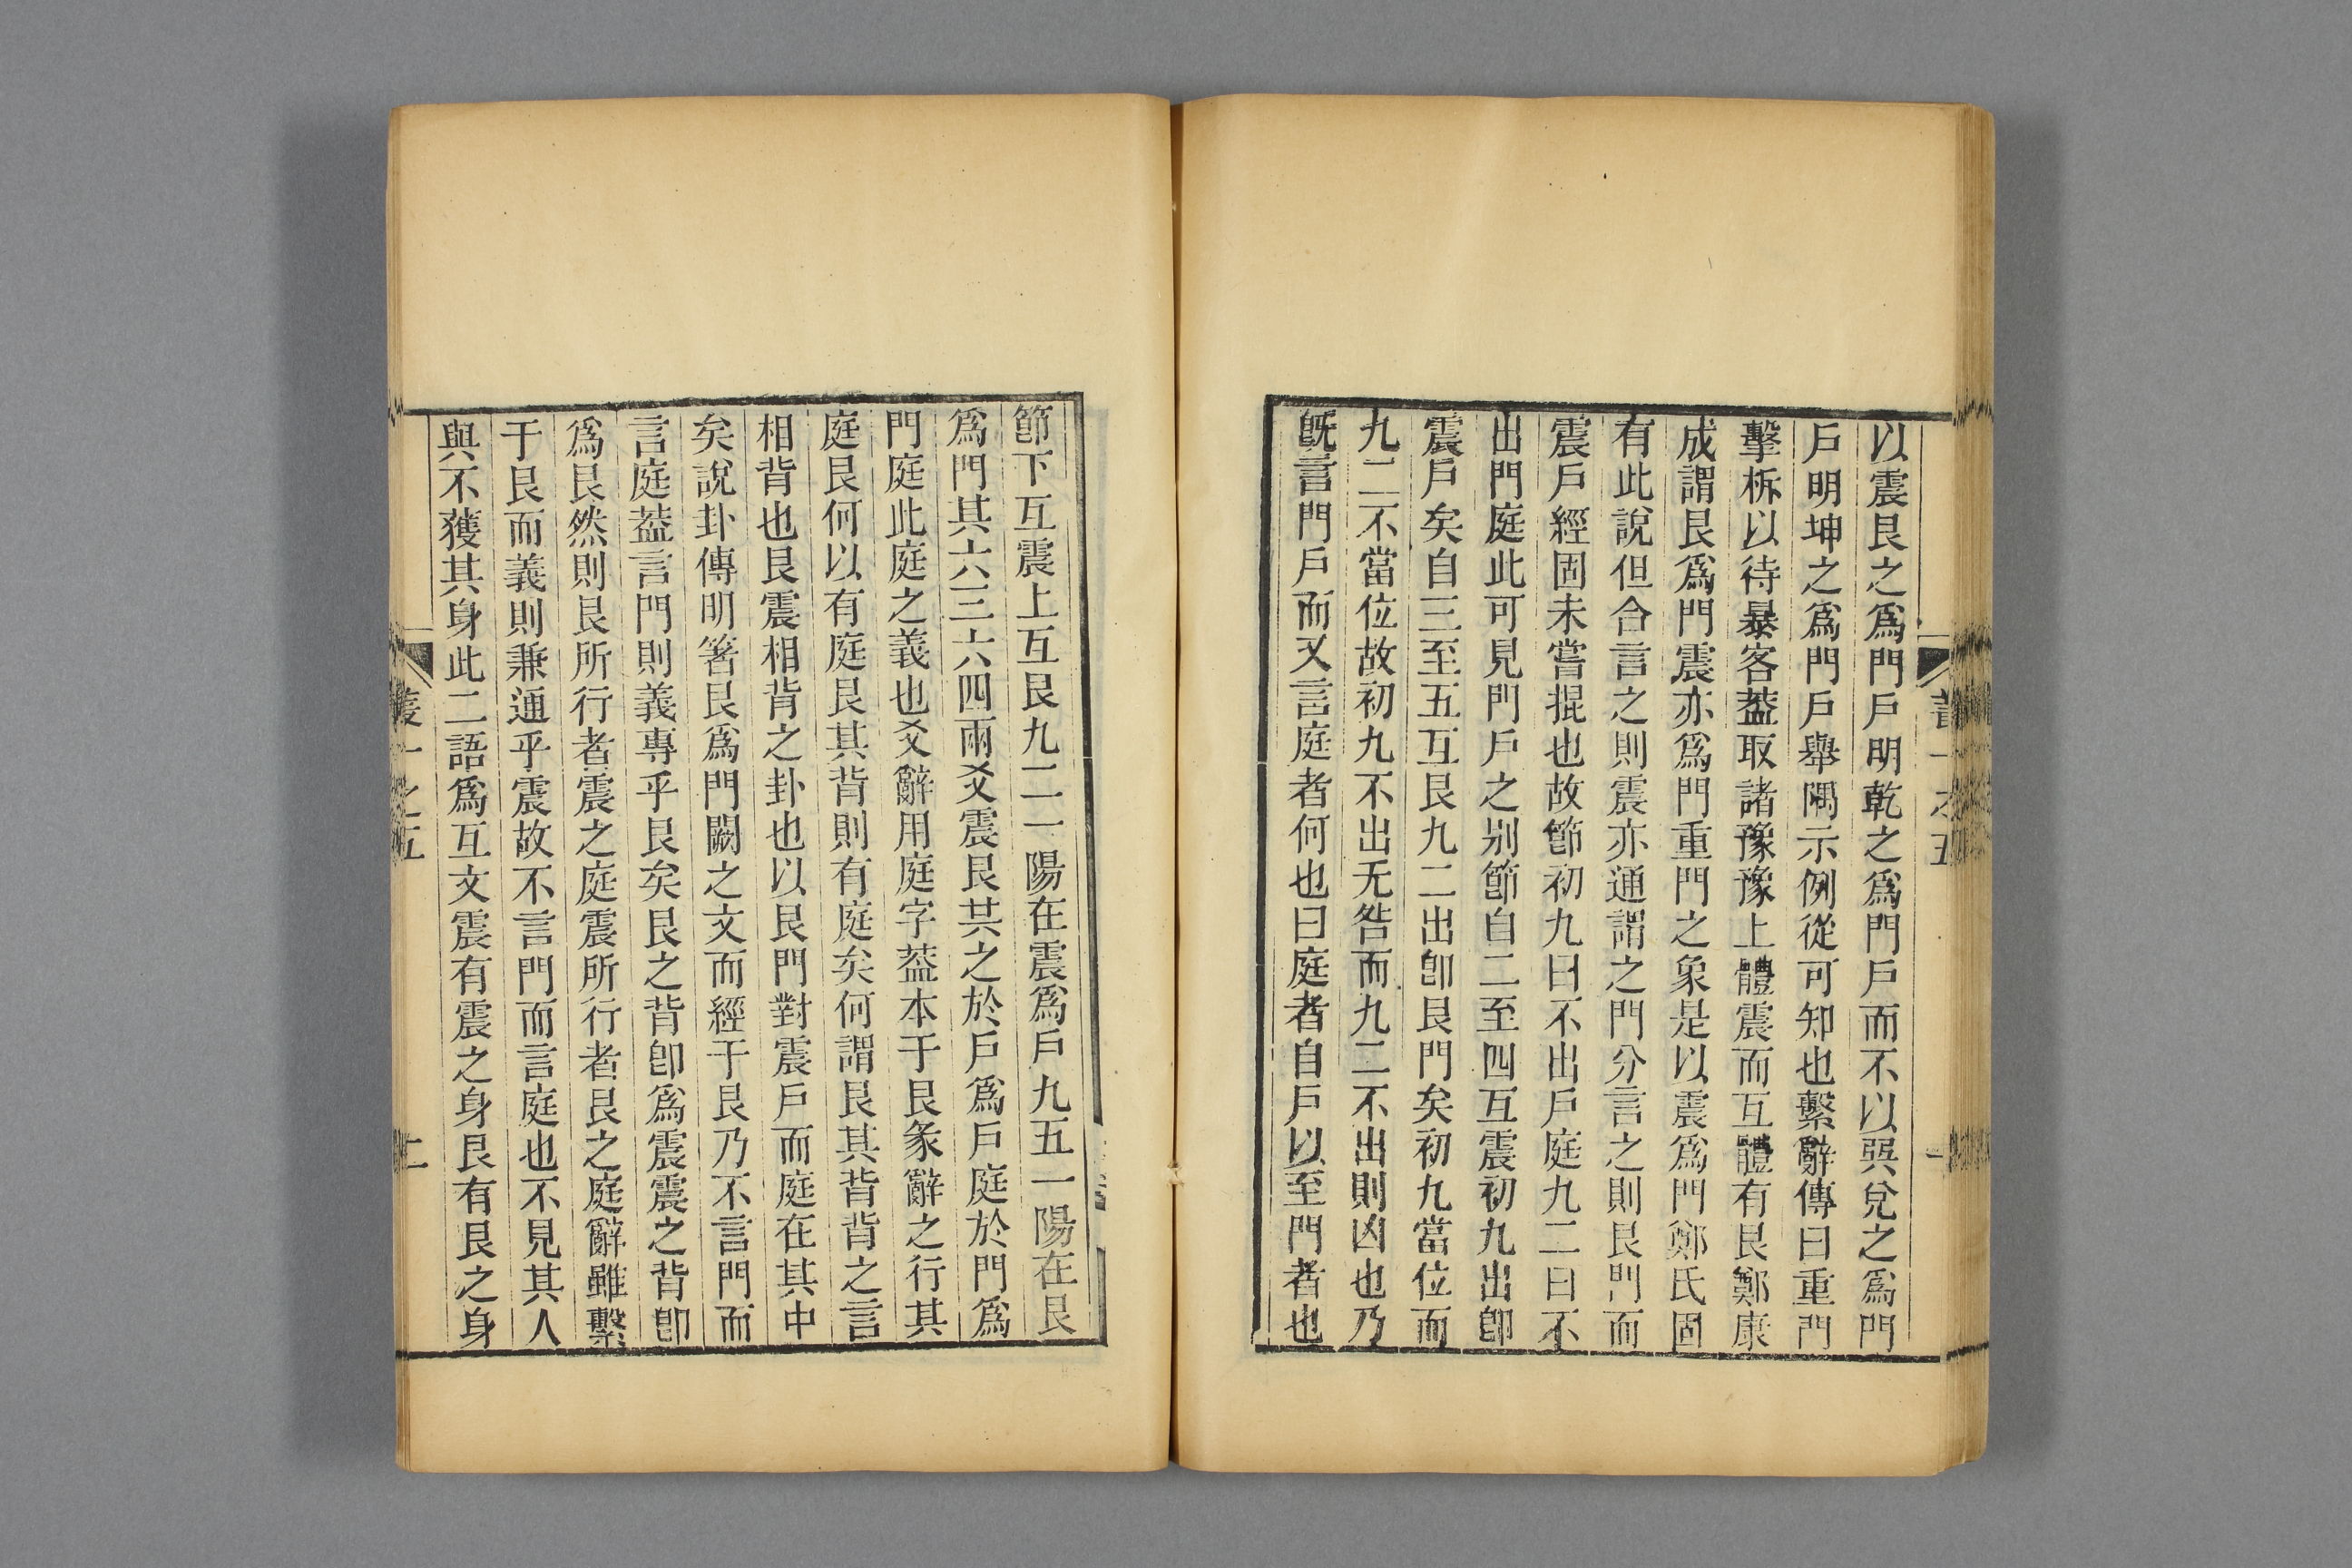 以震艮之爲門戶明乾之爲門戶而不以巽兌之爲門
戶明坤之爲門戶舉隅示例從可知也繫辭傳曰重門
擊柝以待暴客葢取諸豫豫上體震而互體有艮鄭康
成謂艮爲門震亦爲門重門之象是以震爲門鄭氏固
有此說但合言之則震亦通謂之門分言之則艮門而
震戶經固未嘗掍也故節初九曰不出戶庭九二曰不
出門庭此可見門戶之别節自二至四互震初九出卽
震戶矣自三至五互艮九二出卽艮門矣初九當位而
九二不當位故初九不出无咎而九二不出則凶也乃
旣言門戶而又言庭者何也曰庭者自戶以至門者也
節下互震上互艮九二一陽在震爲戶九五一陽在艮
爲門其六三六四兩爻震艮共之於戶爲戶庭於門爲
門庭此庭之義也爻辭用庭字葢本于艮彖辭之行其
庭艮何以有庭艮其背則有庭矣何謂艮其背背之言
相背也艮震相背之卦也以艮門對震戶而庭在其中
矣說卦傳明箸艮爲門闕之文而經于艮乃不言門而
言庭葢言門則義專乎艮矣艮之背卽爲震震之背卽
爲艮然則艮所行者震之庭震所行者艮之庭辭雖繫
于艮而義則兼通乎震故不言門而言庭也不見其人
與不獲其身此二語爲互文震有震之身艮有艮之身